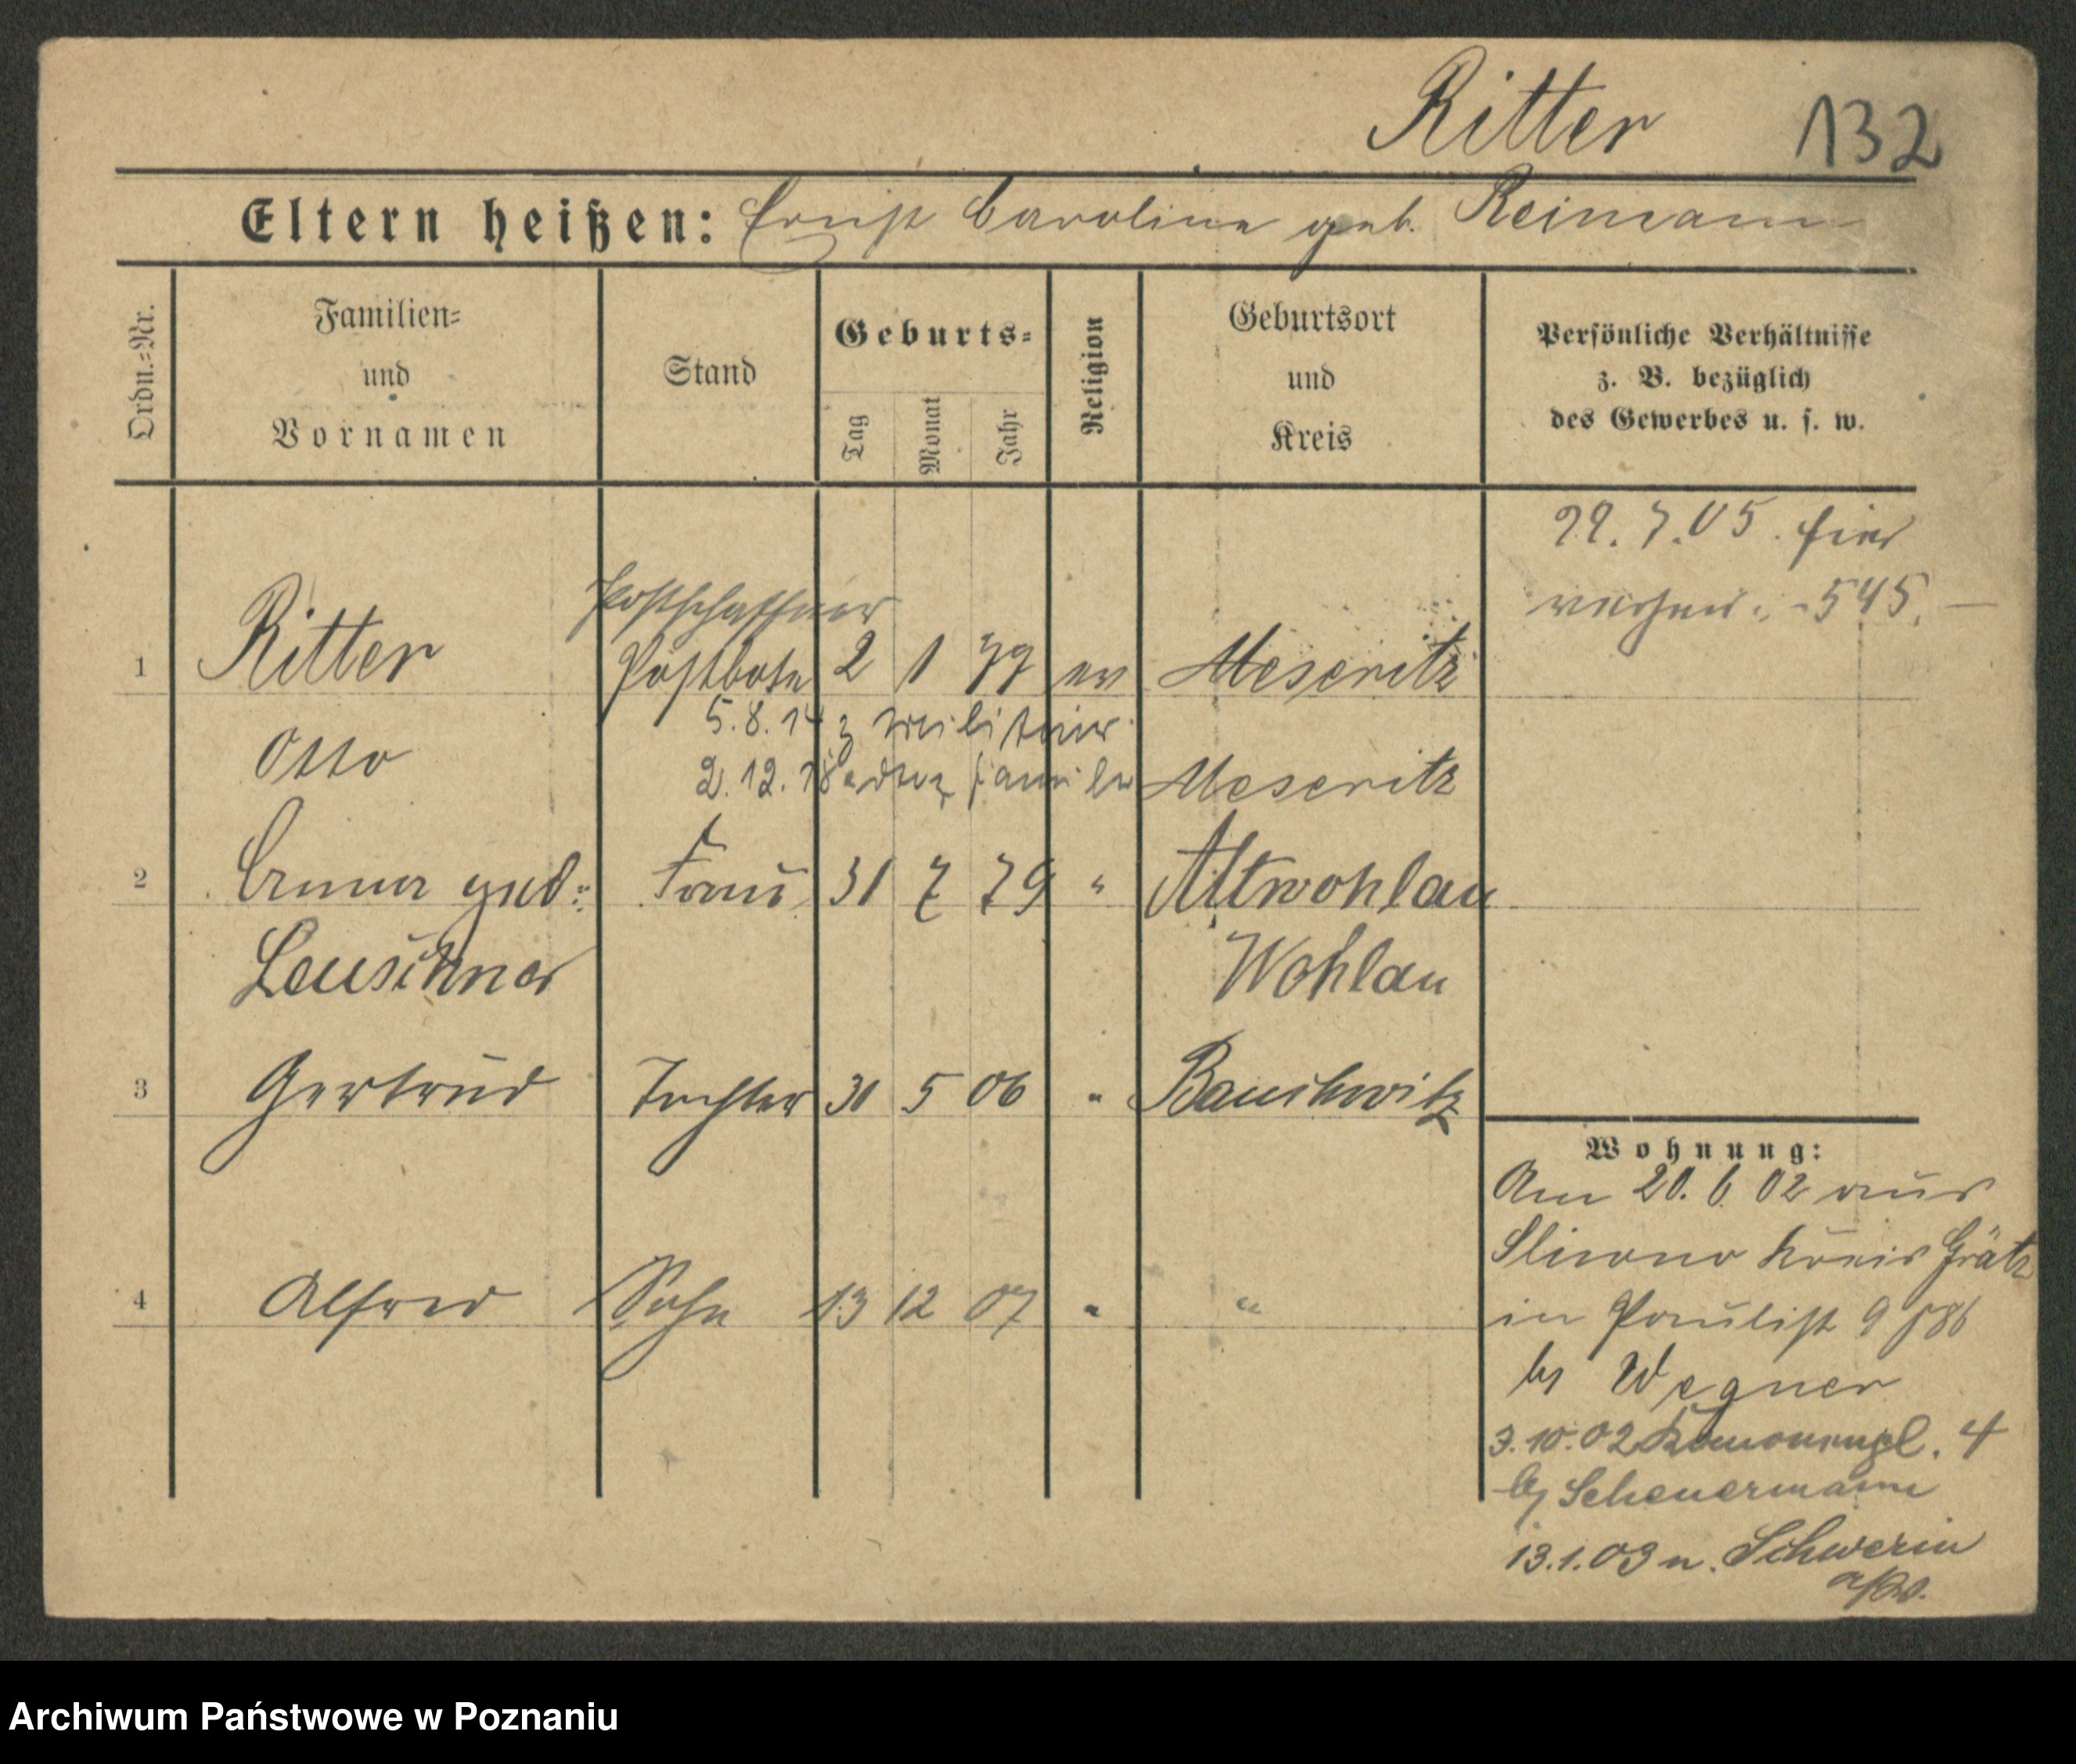 Ritter 132
Eltern heißen: Ernst Caroline geb. Reimann
Ordn.=Nr.
Familien=
und
Vornamen
Stand
Geburts=
Tag
Monat
Jahr
Religion
Geburtsort
und
Kreis
Persönliche Verhältnisse
z. B. bezüglich
des Gewerbes u. s. w.
22.7.05. hier
545.
Postschaffner
1 Ritter Postbote 2 1 79 ev Meseritz
5.8.14 z Militair
Otto 2.12.18 Familie Meseritz
2 Emma geb: Frau 31 7 79 " Altwohlau
Leuschner Wohlau
3 Gertrud Tochter 31 5 06 " Bauchwitz
Wohnung:
Am 20.6.02 aus
Kreis Grätz
4 Alfred Sohn 13 12 07 " "
in Paulist 9
by Wegner
3.10.02 4
by Scheuermann
13.1.03 n. Schwerin
a/W.
Archiwum Państwowe w Poznaniu